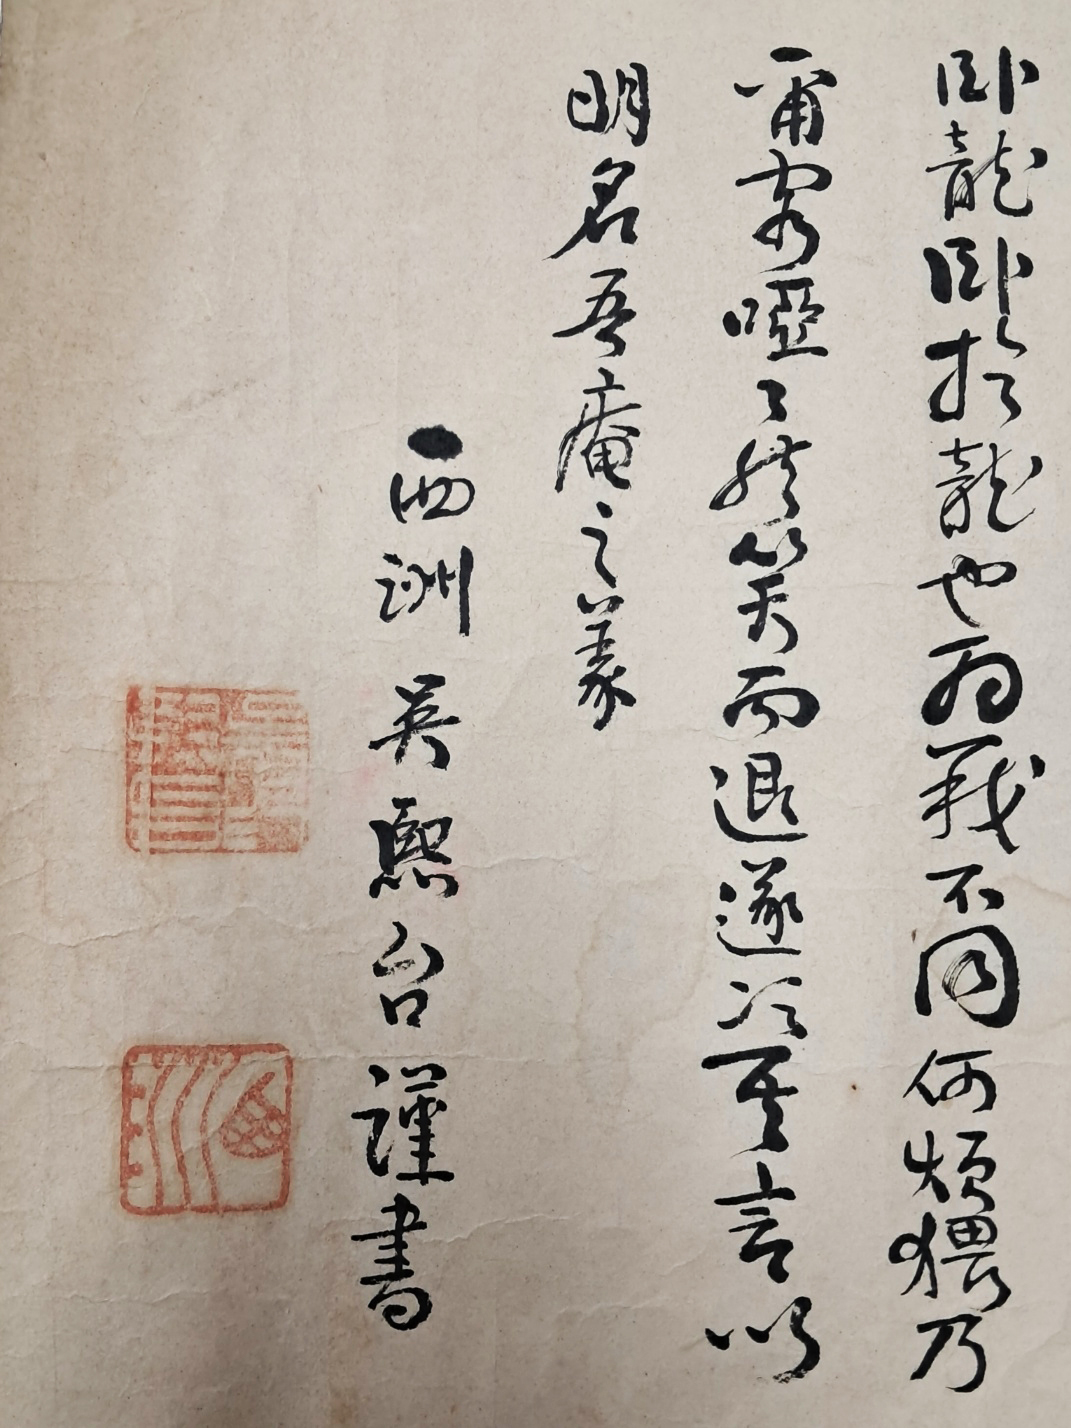 卧龍卧於龍也為我不同何煩猥乃
爾客啞々然笑而退遂次其言以
明名吾庵之義
西洲吳熙台謹書